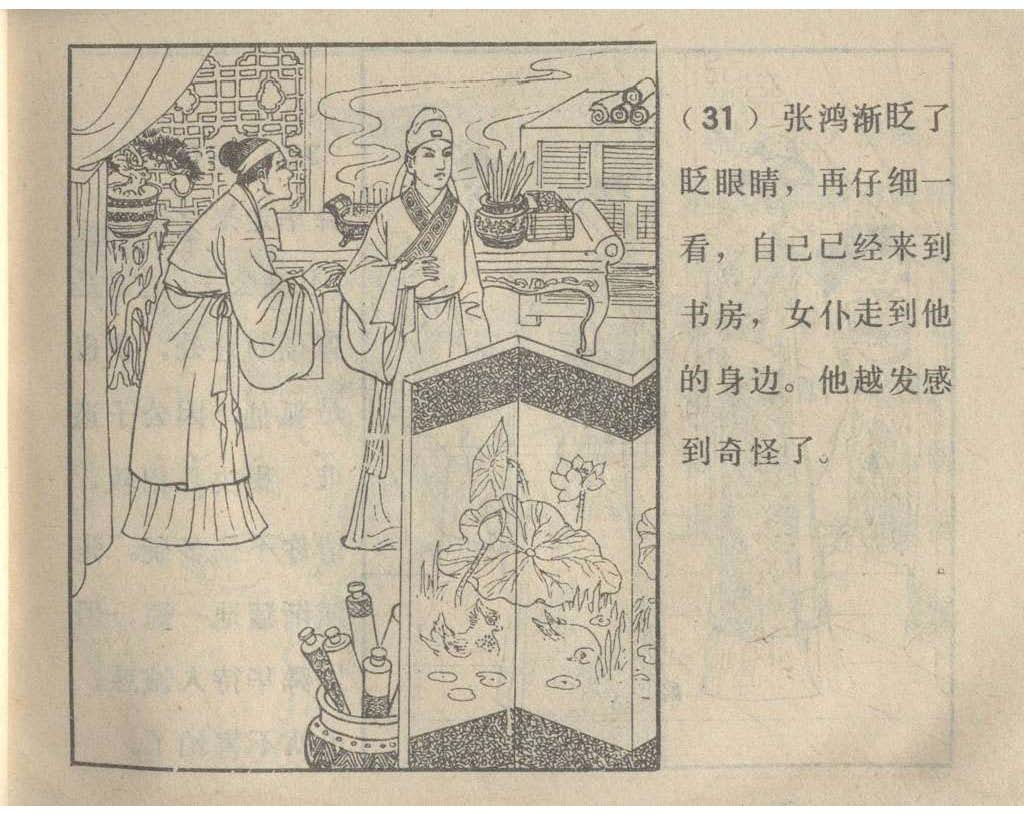 （31）张鸿渐眨了
眨眼睛，再仔细一
看，自己已经来到
书房，女仆走到他
的身边。他越发感
到奇怪了。